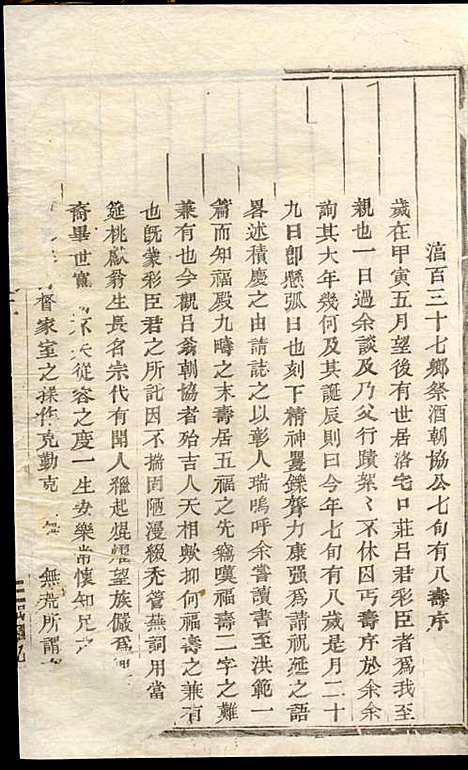 涪百三十七鄉祭酒朝協公七旬有八壽序
歲在甲寅五月望後有世居洛宅口莊呂君彩臣者為我至
親也一日過余談及乃父行蹟絮〻不休因丐壽序於余余
詢其大年幾何及其誕辰則曰今年七旬有八歲是月二十
九日卽懸弧日也刻下精神矍鑠膂力康强為請祝延之語
畧述積慶之由請誌之以彰人瑞嗚呼余嘗讀書至洪範一
篇而知福殿九疇之末壽居五福之先竊嘆福壽二字之難
兼有也今觀呂翁朝協者殆吉人天相歟抑何福壽之兼有
也旣蒙彩臣君之所託因不揣固陋漫綴禿管蕪詞用當
筵桃獻翁生長名宗代有聞人種起焜燿望族儼為
裔畢世寬 從容之度一生安樂常懷知足之
督家室之操作克勤克 無 無荒所謂